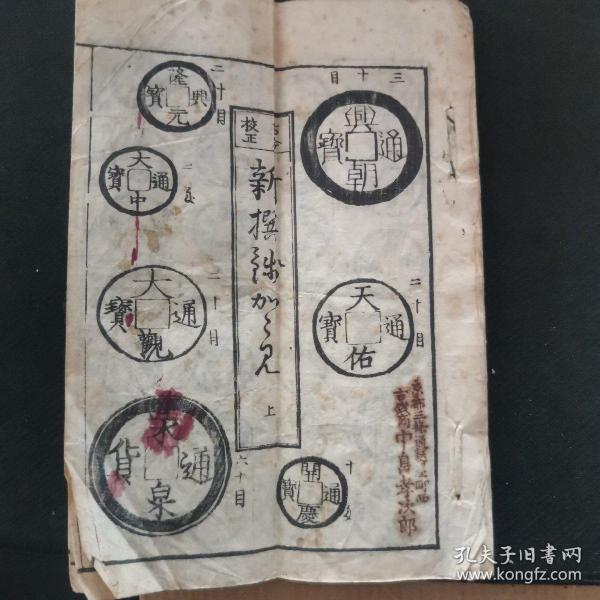 三十目
興朝通寶
二十目
天佑通寶
十匁
開慶通寶
古今
校正
新撰銭かゞ見
上
二十目
隆興元寶
二匁
大中通寶
二十目
大觀通寶
六十目
泉通貨
古錢商 中島孝次郎
孔夫子旧书网
www.kongfz.com